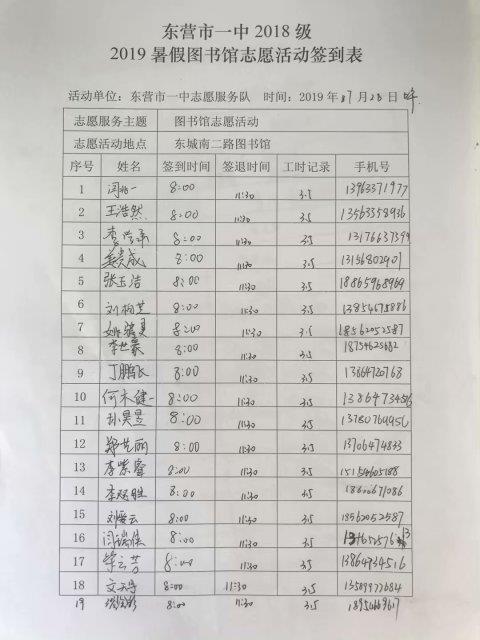 东营市一中 2018 级
2019 暑假图书馆志愿活动签到表
活动单位：东营市一中志愿服务队 时间：2019 年 07 月 28 日
志愿服务主题 图书馆志愿活动
志愿活动地点 东城南二路图书馆
序号 姓名 签到时间 签退时间 工时记录 手机号
1 8:00 11:30 3.5 13963371977
2 王浩然 8:00 11:30 3.5 13563358936
3 8:00 11:30 3.5 13176637399
4 8:00 11:30 3.5 13156802907
5 张玉洁 8:00 11:30 3.5 18865968969
6 8:00 11:30 3.5 13854675886
7 8:00 11:30 3.5 18562052587
8 李世豪 8:00 11:30 3.5 18754625682
9 丁鹏辰 8:00 11:30 3.5
10 8:00 11:30 3.5
11 孙昊昱 8:00 11:30 3.5
12 8:00 11:30 3.5 13706474833
13 李紫睿 8:00 11:30 3.5 15154605188
14 8:00 11:30 3.5
15 刘爱云 8:00 11:30 3.5 18562052587
16 8:00 11:30 3.5
17 8:00 11:30 3.5 13864734516
18 8:00 11:30 3.5 13589977684
19 8:00 11:30 3.5